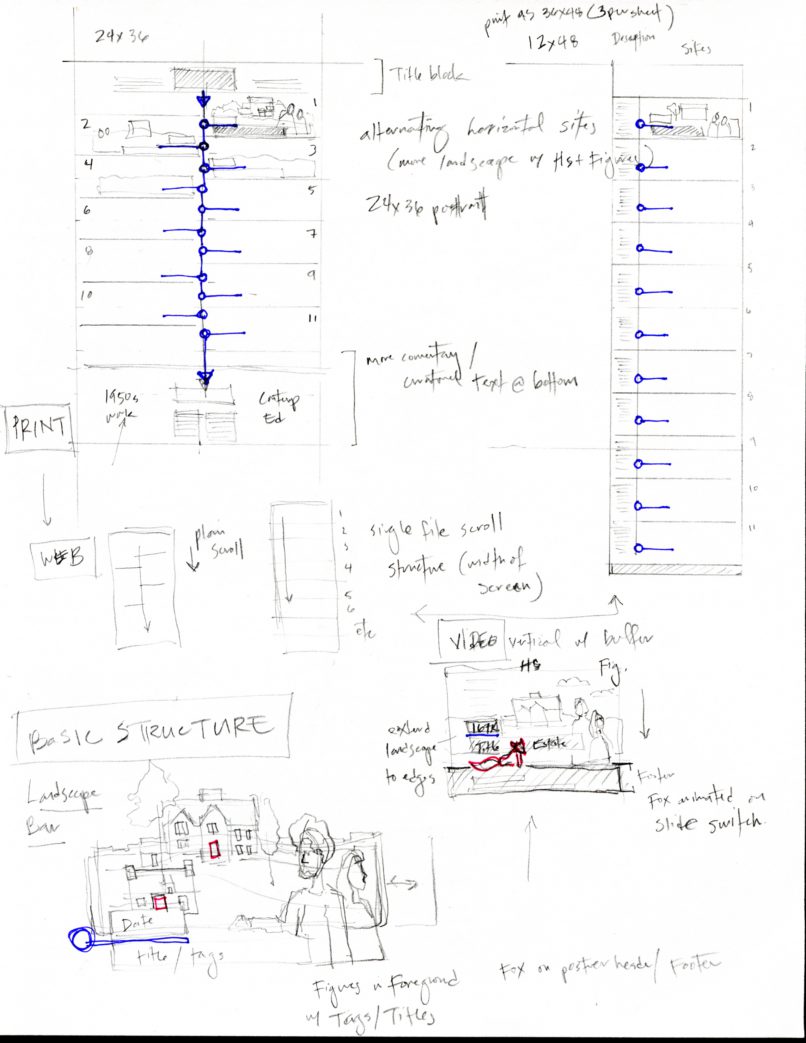 24x36
print as 36x48 (3 per sheet)
12x48
Description
Sites
Title block
1
2
3
4
5
6
7
8
9
10
11
alternating horizontal sites
(more landscape w/ HS + Figures)
24x36 portrait
more commentary /
text @ bottom
1950s
work
Ed
1
2
3
4
5
6
7
8
9
10
11
PRINT
WEB
plain
scroll
1
2
3
4
5
6
etc
single file scroll
structure (width of
screen)
VIDEO
vertical w/ buffer
HS
Fig.
extend
landscape
to edges
Title
Estate
Footer
Fox animated on
slide switch.
BASIC STRUCTURE
Landscape
Bar
Date
title/tags
Figures in Foreground
w/ Tags/Titles
Fox on poster header/Footer